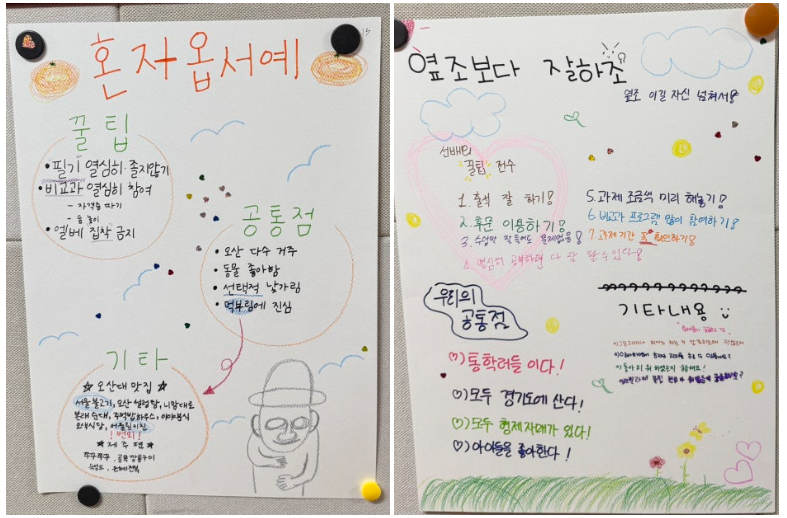 혼자옵서예
꿀팁
• 필기 열심히·졸지않기
• 비교과 열심히 참여
- 자격증 따기
• 엘베 집착 금지
공통점
• 오산 다수 거주
• 동물 좋아함
• 선택적 낯가림
• 먹부림에 진심
기타
☆ 오산대 맛집 ☆
서울불고기, 오산 설렁탕, 니맘대로
본래순대, 주먹밥하우스, 아야분식
! 번외!
☆ 제주편 ☆
옆조보다 잘하조
옆조 이길 자신 넘쳐서!
선배의
꿀팁 전수
1. 출석 잘 하기!
2. 후문 이용하기!
3. 수업만 잘 들어도 문제없음!
4. 열심히 공부하면 다 잘 할 수 있다!
5. 과제 조금씩 미리 해놓기!
6. 비교과 프로그램 많이 참여하기!
7. 과제기간 꼭 확인하기!
우리의
공통점
♡) 통학러들 이다!
♡) 모두 경기도에 산다!
♡) 모두 형제자매가 있다!
♡) 아이들을 좋아한다!
기타내용